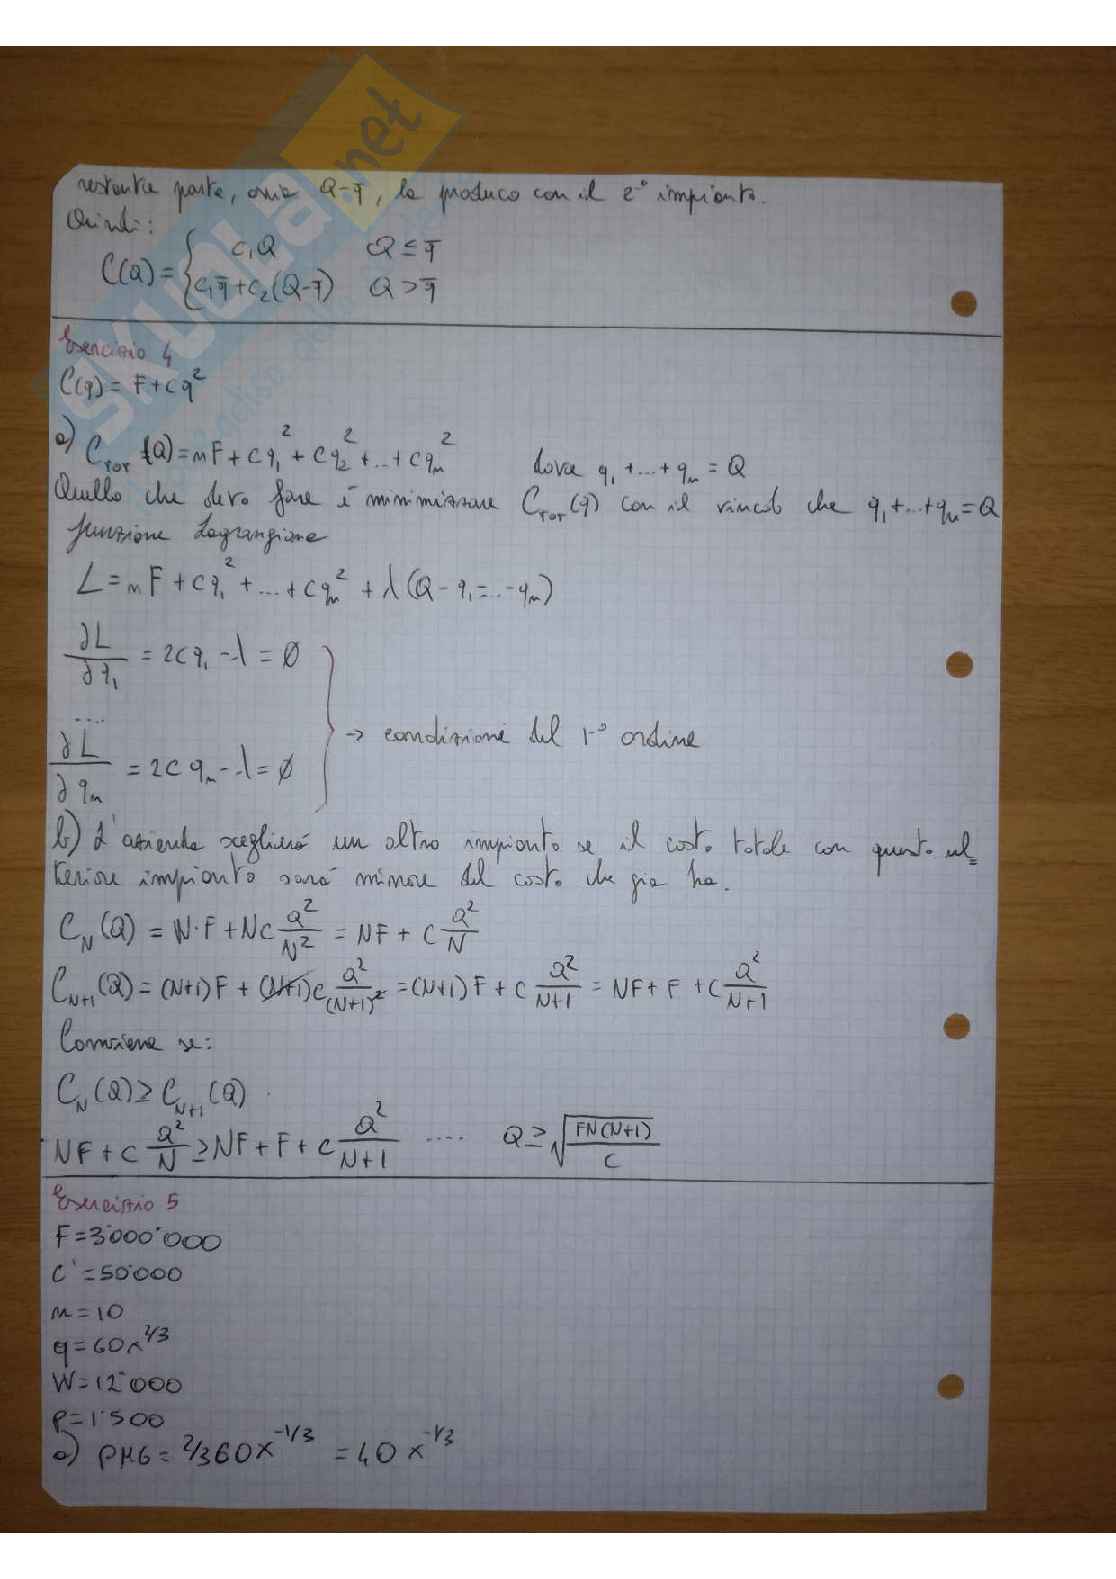 restante parte, ovvia Q-q̅, la produco con il 2° impianto.
Quindi:
C(Q) = { c₁Q Q ≤ q̅
c₁q̅+c₂(Q-q̅) Q > q̅
Esercizio 4
C(q) = F+cq²
a) C_TOT (Q) = nF + cq₁² + cq₂² + ... + cqₙ² dove q₁ + ... + qₙ = Q
Quello che devo fare è minimizzare C_TOT(q) con il vincolo che q₁+...+qₙ = Q
funzione Lagrangiana
L = nF + cq₁² + ... + cqₙ² + λ(Q - q₁ = ... - qₙ)
∂L/∂q₁ = 2cq₁ - λ = Ø
....
→ condizione del 1° ordine
∂L/∂qₙ = 2cqₙ - λ = Ø
b) L'azienda sceglierá un altro impianto se il costo totale con questo ul=
teriore impianto sará minore del costo che gia ha.
C_N(Q) = N·F + Nc Q²/N² = NF + c Q²/N
C_N+1(Q) = (N+1)F + (N+1)c Q²/(N+1)² = (N+1)F + c Q²/N+1 = NF + F + c Q²/N+1
Conviene se:
C_N(Q) ≥ C_N+1(Q)
NF + c Q²/N ≥ NF + F + c Q²/N+1 .... Q ≥ √(FN(N+1)/c)
Esercizio 5
F = 3'000'000
C' = 50'000
n = 10
q = 60x^2/3
W = 12'000
P = 1'500
a) PMG = 2/3 60x^-1/3 = 40x^-1/3
SKUOLA.net